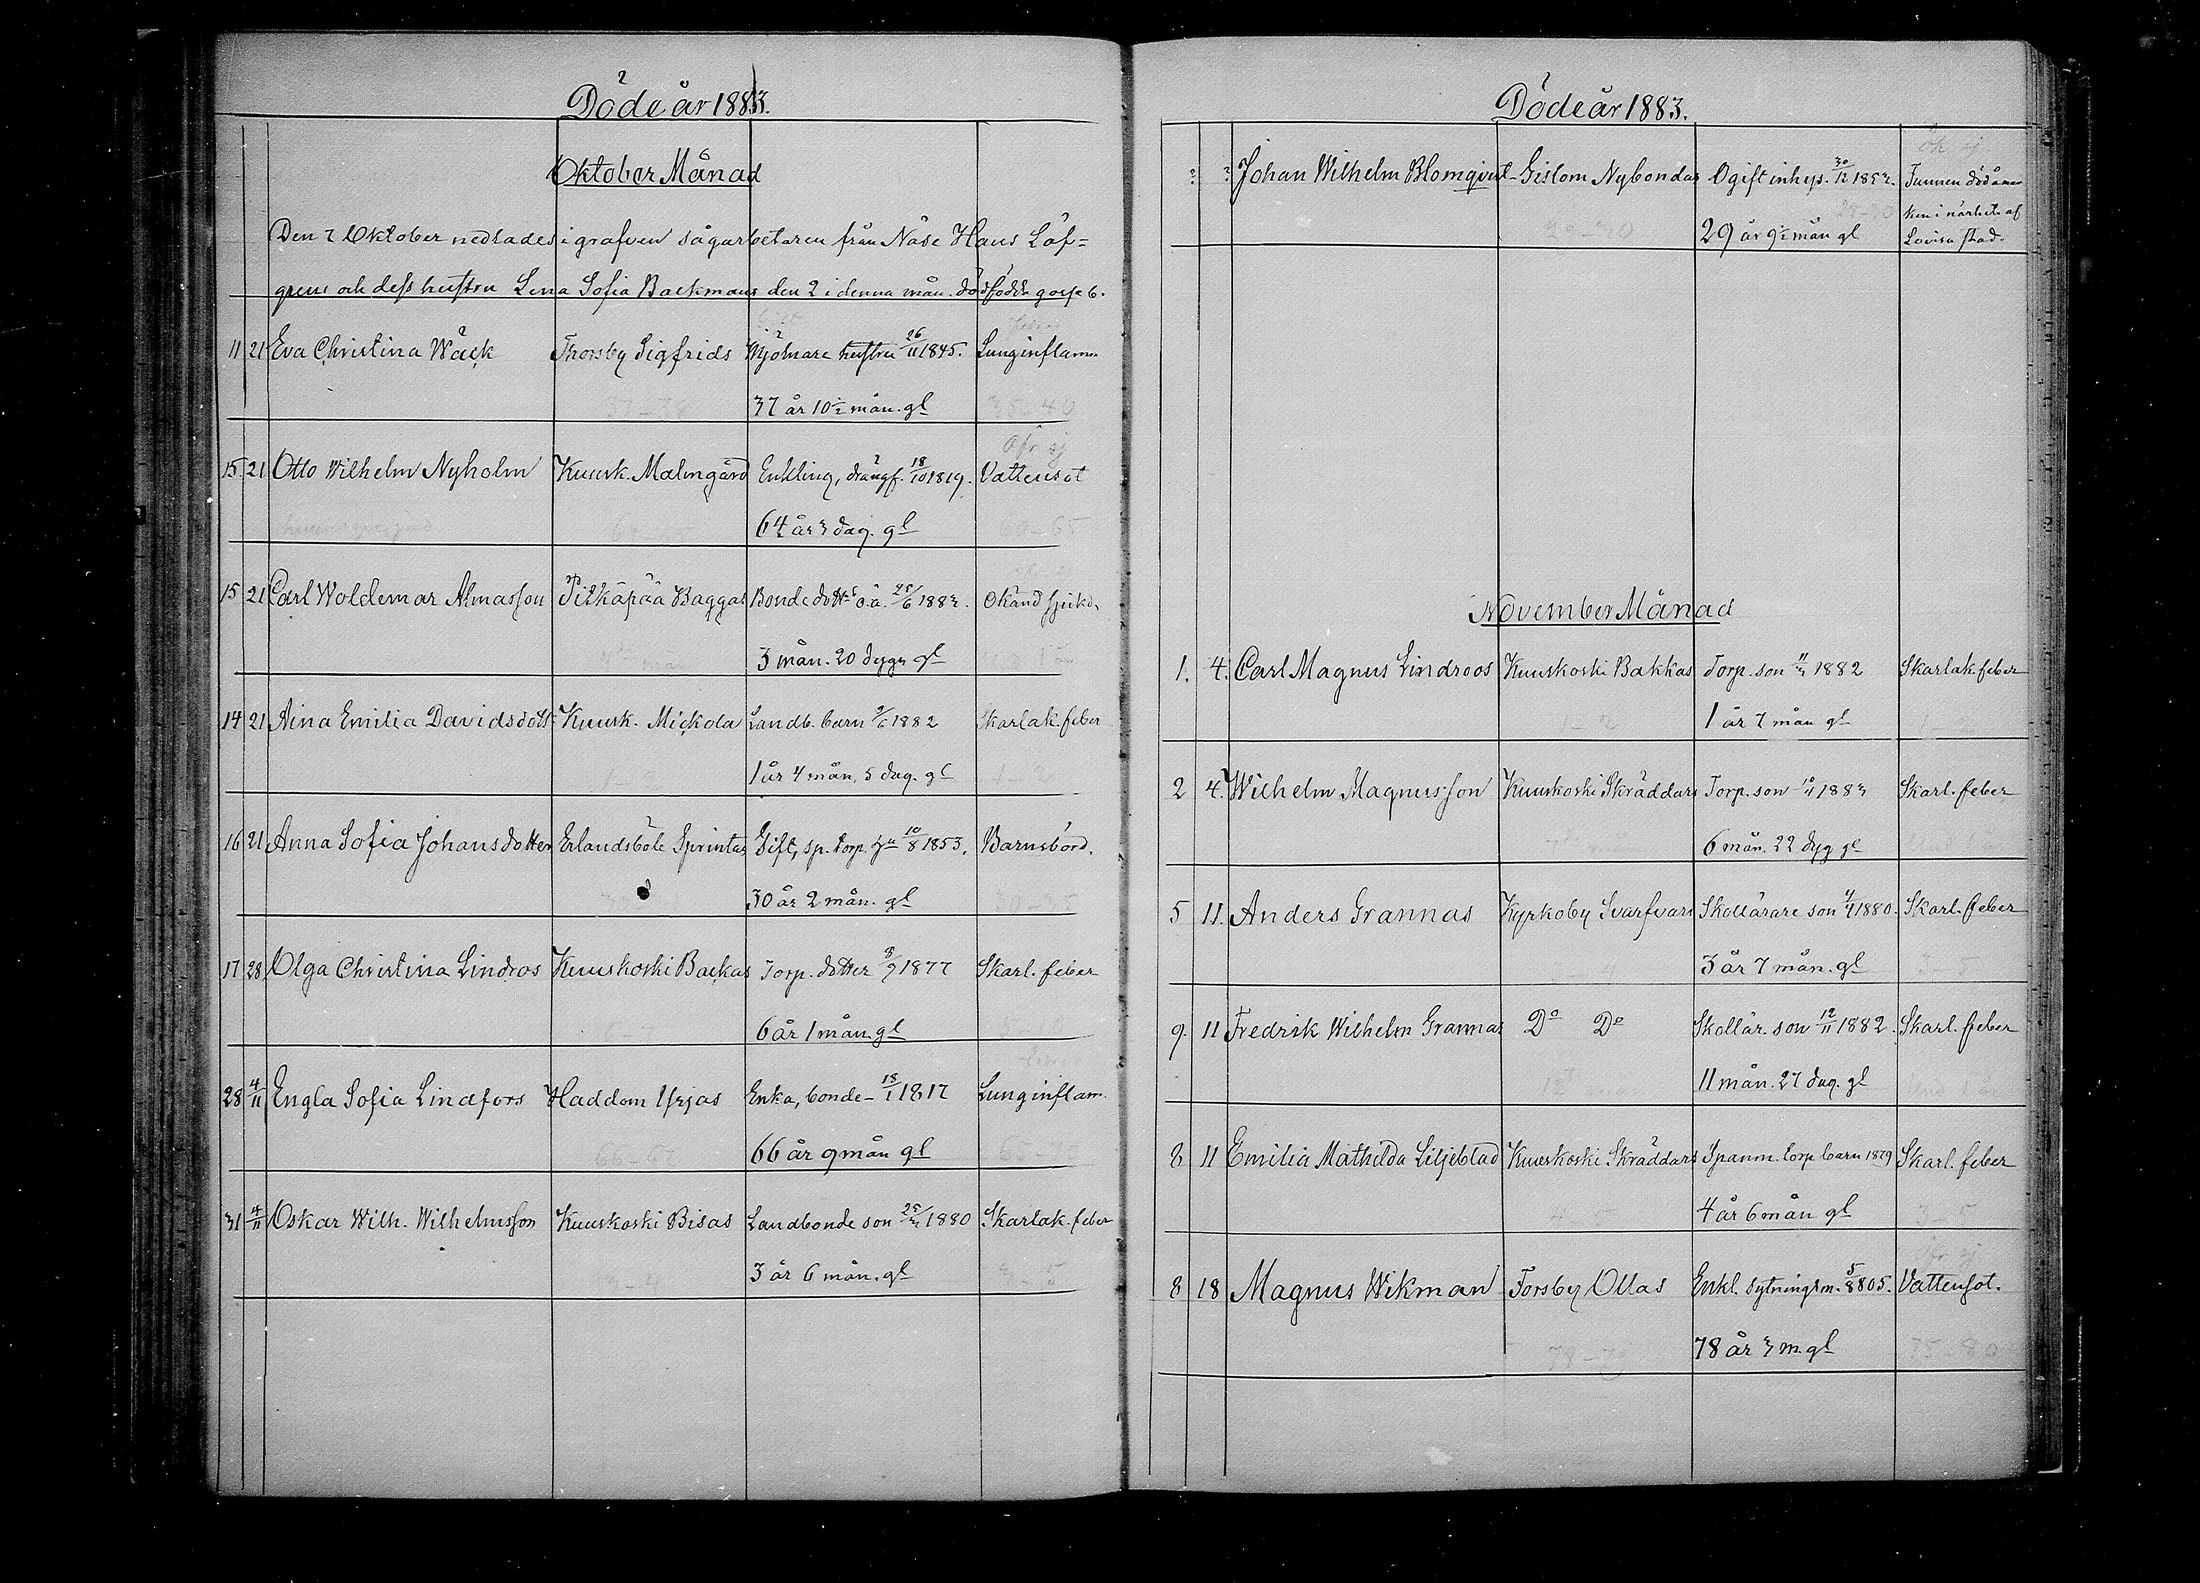 Döde år 1883.
Oktober Månad
Den 7 Oktober nedlades i grafven sågarbetaren från Näse Hans Löf-
grens och dess hustru Lena Sofia Backmans den 2 i denna mån. dödfödde gosse b.
11 21 Eva Christina Wäck Thorsby Sigfrids Mjölnare hustru 26/11 1845. Lunginflamm
37 år 10½ mån. gl
15 21 Otto Wilhelm Nyholm Kuusk. Malmgård Enkling, drängf. 18/10 1819. Vattensot
64 år 3 dag. gl
15 21 Carl Woldemar Almasson Pitkäpää Baggas Bonde dotts o.ä. 25/6 1883. Okänd sjukd.
3 mån. 20 dygn gl
14 21 Aina Emilia Davidsdott Kuusk. Mickola Landb. barn 9/6 1882 Skarlak. feber
1 år 4 mån. 5 dag. gl
16 21 Anna Sofia Johansdotter Erlandsböle Sprintas Gift, sp. torp. hu 10/8 1853. Barnsbörd.
30 år 2 mån. gl
17 28 Olga Christina Lindros Kuuskoski Backas Torp. dotter 8/9 1877 Skarl. feber
6 år 1 mån. gl
28 4/11 Engla Sofia Lindfors Haddom Yrjas Enka, bonde- 18/1 1817 Lunginflam.
66 år 9 mån gl
31 4/11 Oskar Wilh. Wilhelmsson Kuuskoski Bisas Landbonde son 25/4 1880 Skarlak. feber
3 år 6 mån. gl
Döde år 1883.
? ? Johan Wilhelm Blomqvist Gislom Nybondas Ogift inhys. 30/12 1853. Funnen död å mar
ken i närhet af
29 år 9½ mån gl Lovisa stad.
November Månad
1. 4. Carl Magnus Lindroos Kuuskoski Bakkas Torp. son 11/3 1882 Skarlak. feber
1 år 7 mån gl
2 4. Wilhelm Magnusson Kuuskoski Skräddars Torp. son 10/4 1883 Skarl. feber
6 mån. 22 dyg gl
5 11. Anders Grannas Kyrkoby Svarfvars Skollärare son 4/4 1880. Skarl. feber
3 år 7 mån. gl
9. 11 Fredrik Wilhelm Grannas Do Do Skollär. son 12/11 1882. Skarl. feber
11 mån. 27 dag. gl
8 11 Emilia Mathilda Liljeblad Kuuskoski Skräddars Spanm. torp. barn 1879 Skarl. feber
4 år 6 mån gl
8 18 Magnus Wikman Forsby Ollas Enkl. sytningsm. 5/8 1805. Vattensot.
78 år 3 m. gl